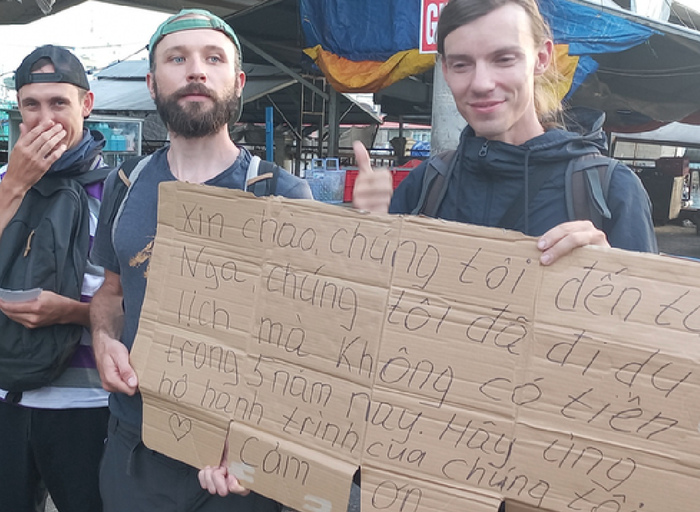 G
Xin chào, chúng tôi đến t
Nga, chúng tôi đã đi du
lịch mà không có tiền
trong 5 năm nay. Hãy ủng
hộ hành trình của chúng tôi
♡ Cảm ơn